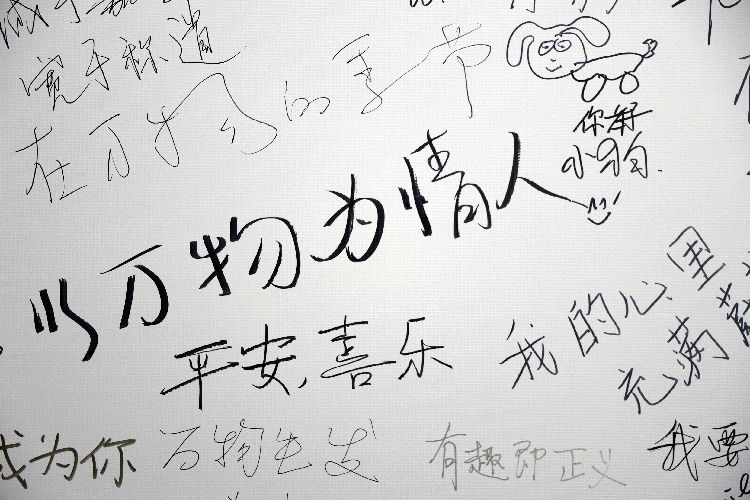 在万物的季节
你好
小狗.
以万物为情人
平安,喜乐
我的心里
充满
成为你
万物生发
有趣即正义
我要